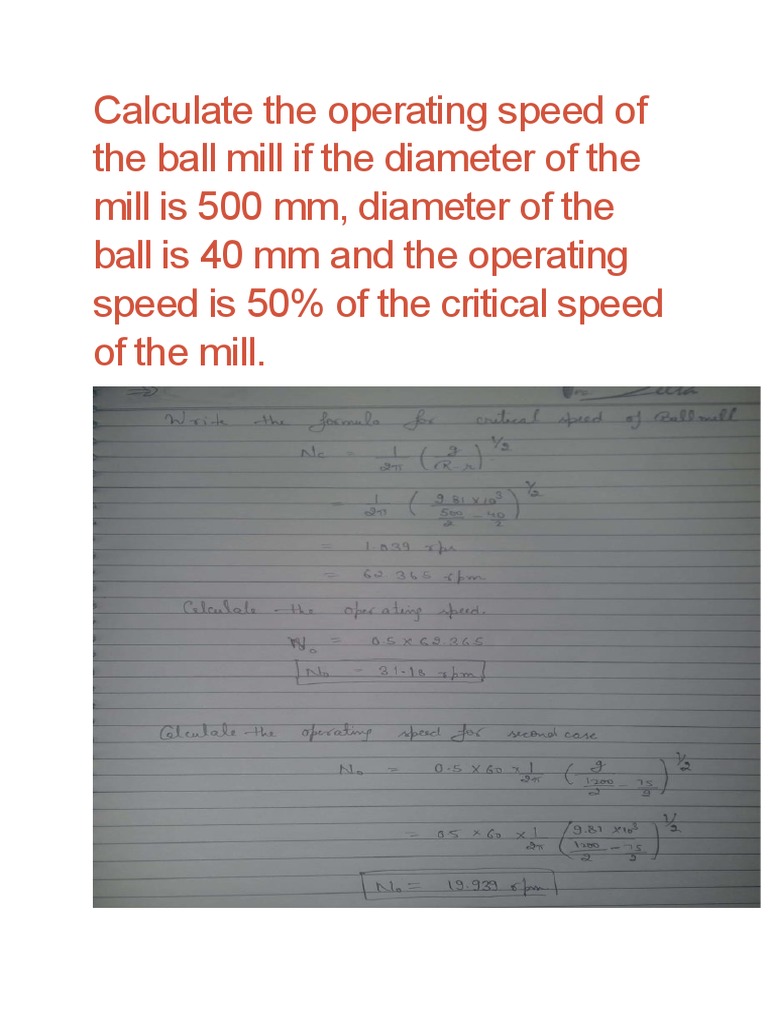 Calculate the operating speed of
the ball mill if the diameter of the
mill is 500 mm, diameter of the
ball is 40 mm and the operating
speed is 50% of the critical speed
of the mill.
Write the formula for critical speed of Ballmill
Nc = 1/2π (g/R-r)^1/2
= 1/2π (9.81 × 10^3 / 500/2 - 40/2)^1/2
= 1.039 rps
= 62.365 rpm
Calculate the operating speed.
N₀ = 0.5 × 62.365
N₀ = 31.18 rpm
Calculate the operating speed for second case
N₀ = 0.5 × 60 × 1/2π (g / 1200/2 - 75/2)^1/2
= 0.5 × 60 × 1/2π (9.81 × 10^3 / 1200/2 - 75/2)^1/2
N₀ = 19.939 rpm